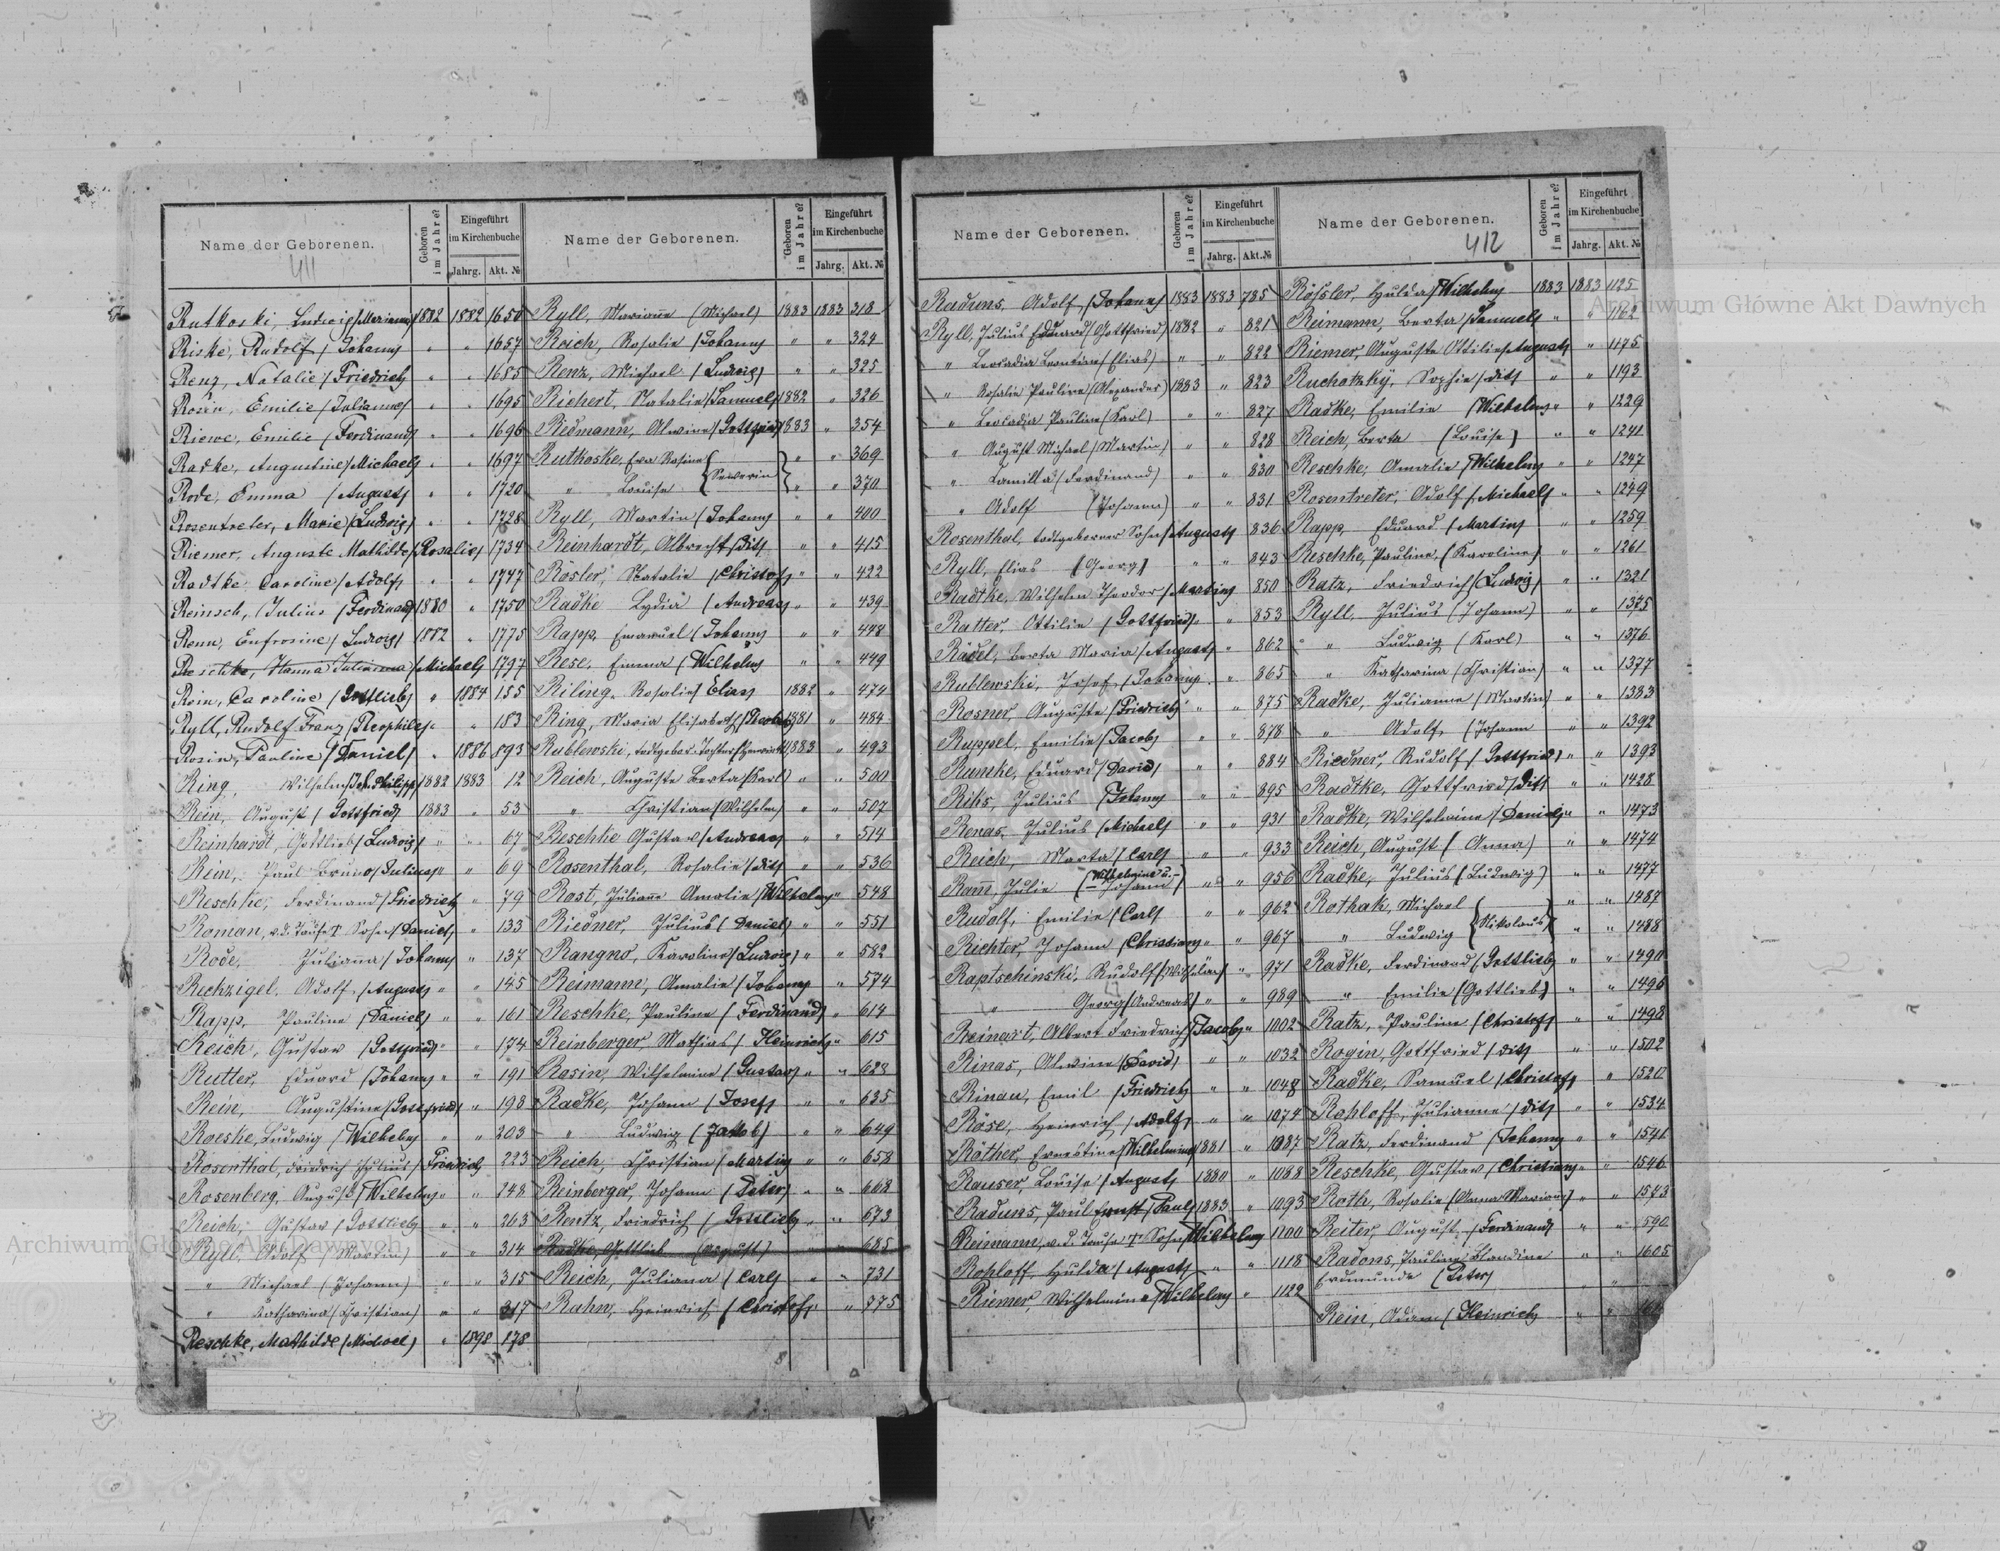 Name der Geborenen.
411
Geboren im Jahre?
Eingeführt im Kirchenbuche
Jahrg. Akt. №
Rutkoski, Ludwig (Marianna) 1882 1882 1650
Riske, Rudolf (Johann) " " 1657
Renz, Natalie (Friedrich) " " 1685
Rosin, Emilie (Julianne) " " 1695
Riewe, Emilie (Ferdinand) " " 1696
Radke, Augustine (Michael) " " 1697
Rode, Emma (August) " " 1720
Rosentreter, Marie (Ludwig) " " 1728
Riemer, Auguste Mathilde (Rosalie) 1734
Radtke Caroline (Adolf) " " 1747
Reinsch, Julius (Ferdinand) 1880 " 1750
Renn, Eufrosine (Ludwig) 1882 " 1775
Reschke, Hanna Julianna (Michael) 1797
Rein, Caroline (Gottlieb) " 1884 155
Ryll, Rudolf Franz (Theophile) " " 183
Rosin, Pauline (Daniel) " 1886 893
Ring, Wilhelm (Joh. Philipp) 1882 1883 12
Rein, August (Gottfried) 1883 " 53
Reinhardt, Gottlieb (Ludwig) " " 67
Rein, Paul Bruno (Julius) " " 69
Reschke, Ferdinand (Friedrich) " 79
Roman, v.d. Taufe † Sohn (Daniel) " 133
Rode, Juliana (Johann) " " 137
Rechzigel, Adolf (August) " " 145
Rapp, Pauline (Daniel) " " 161
Reich, Gustav (Gottfried) " " 174
Rutter, Eduard (Johann) " " 191
Rein, Augustine (Gottfried) " 198
Roeske, Ludwig (Wilhelm) " " 203
Rosenthal, Friedrich Julius (Friedrich) 223
Rosenberg, August (Wilhelm) " " 248
Reich, Gustav (Gottlieb) " " 263
Ryll, Adolf (Martin) " " 314
" Michael (Johann) " " 315
" Katharina (Christian) " " 317
Reschke, Mathilde (Michael) " 1898 178
Name der Geborenen.
Geboren im Jahre?
Eingeführt im Kirchenbuche
Jahrg. Akt. №
Ryll, Marianne (Michael) 1883 1883 318
Reich, Rosalie (Johann) " " 324
Renz, Michael (Ludwig) " " 325
Richert, Natalie (Samuel) 1882 " 326
Redmann, Alwine (Gottfried) 1883 " 354
Rutkoske, Eva Rosine (Sewerin) " " 369
" Louise " " 370
Ryll, Martin (Johann) " " 400
Reinhardt, Albrecht (dito) " " 415
Rösler, Natalie (Christof) " " 422
Radke Lydia (Andreas) " " 439
Rapp, Emanuel (Johann) " " 448
Rese, Emma (Wilhelm) " " 449
Riling, Rosalie (Elias) 1882 " 474
Ring, Maria Elisabeth 1881 " 484
Rublewski, todtgebor. Tochter 1883 " 493
Reich, Auguste Berta (Karl) " " 500
" Christian (Wilhelm) " " 507
Reschke Gustav (Andreas) " " 514
Rosenthal, Rosalie (dito) " " 536
Rost, Julianne Amalie (Wilhelm) " " 548
Riedner, Julius (Daniel) " " 551
Rangno, Karoline (Ludwig) " " 582
Reimann, Amalie (Johann) " " 574
Reschke, Pauline (Ferdinand) " " 614
Reinberger, Mathias (Heinrich) " 615
Rosin, Wilhelmine (Gustav) " " 628
Radke, Johann (Josef) " " 635
" Ludwig (Jakob) " " 649
Reich, Christian (Martin) " " 658
Reinberger, Johann (Peter) " " 668
Rentz, Friedrich (Gottlieb) " " 673
Radke, Gottlieb (August) " " 685
Reich, Juliana (Carl) " " 731
Rahn, Heinrich (Christof) " 775
Name der Geborenen.
Geboren im Jahre?
Eingeführt im Kirchenbuche
Jahrg. Akt. №
Raduns, Adolf (Johann) 1883 1883 785
Ryll, Julius Eduard (Gottfried) 1882 " 821
" Leokadia Leontine (Elias) " " 822
" Rosalie Pauline (Alexander) 1883 " 823
" Leocadia Pauline (Karl) " " 827
" August Michael (Martin) " " 828
" Camilla (Ferdinand) " " 830
" Adolf (Johann) " " 831
Rosenthal, todtgeborner Sohn (August) 836
Ryll, Elias (Georg) " " 843
Radtke, Wilhelm Theodor (Martin) 850
Ratter, Ottilie (Gottfried) " 853
Rädel, Berta Maria (August) " 862
Rublewski, Josef (Johann) " 865
Rosner, Auguste (Friedrich) " " 875
Ruppel, Emilie (Jacob) " " 878
Runtke, Eduard (David) " " 884
Riks, Julius (Johann) " " 895
Renas, Julius (Michael) " " 931
Reich, Marta (Carl) " " 933
Ramm, Julie (Wilhelmine u. Johann) " " 956
Rudolf, Emilie (Carl) " " 962
Richter, Johann (Christian) " " 967
Raptschinski, Rudolf " 971
" Georg (Andreas) " " 989
Reinart, Albert Friedrich (Jacob) " 1002
Rinas, Alwine (David) " " 1032
Rinau, Emil (Friedrich) " " 1048
Röse, Heinrich (Adolf) " " 1074
Röther, Ernestine (Wilhelmine) 1881 " 1087
Rauser, Louise (August) 1880 " 1088
Raduns, Paul Ernst (Paul) 1883 " 1093
Reimann, v.d. Taufe † Sohn (Wilhelm) 1100
Rohloff, Hulda (August) " " 1118
Riemer, Wilhelmine (Wilhelm) " 1122
Name der Geborenen.
412
Geboren im Jahre?
Eingeführt im Kirchenbuche
Jahrg. Akt. №
Rößler, Hulda (Wilhelm) 1883 1883 1125
Reimann, Berta (Samuel) " " 1162
Riemer, Auguste Ottilie (August) " 1175
Ruchatzky, Sophie (dito) " " 1193
Radke, Emilie (Wilhelm) " " 1229
Reich, Berta (Louise) " " 1241
Reschke, Amalie (Wilhelm) " " 1247
Rosentreter, Adolf (Michael) " " 1249
Rapp, Eduard (Martin) " " 1259
Reschke, Pauline (Karoline) " " 1261
Ratz, Friedrich (Ludwig) " " 1321
Ryll, Julius (Johann) " " 1375
" Ludwig (Karl) " " 1376
" Katharina (Christian) " " 1377
Radke, Julianne (Martin) " " 1383
" Adolf (Johann " " 1392
Riedner, Rudolf (Gottfried) " " 1393
Radtke, Gottfried (dito) " " 1428
Radke, Wilhelmine (Daniel) " " 1473
Reich, August (Anna) " " 1474
Radke, Julius (Ludwig) " " 1477
Rothak, Michael (Nikolaus) " " 1487
" Ludwig " " 1488
Radke, Ferdinand (Gottlieb) " " 1490
" Emilie (Gottlieb) " " 1496
Ratz, Pauline (Christof) " " 1498
Rogin, Gottfried (dito) " " 1502
Radke, Samuel (Christof) " 1520
Rohloff, Julianne (dito) " " 1534
Ratz, Ferdinand (Johann) " " 1541
Reschke, Gustav (Christian) " " 1546
Roth, Rosalie (Anna Mariana) " " 1543
Reiter, August (Ferdinand) " " 590
Radons, Pauline Blandine " " 1605
Erdmunde (Peter)
Rein, Adam (Heinrich) " "
Archiwum Główne Akt Dawnych
Archiwum Główne Akt Dawnych